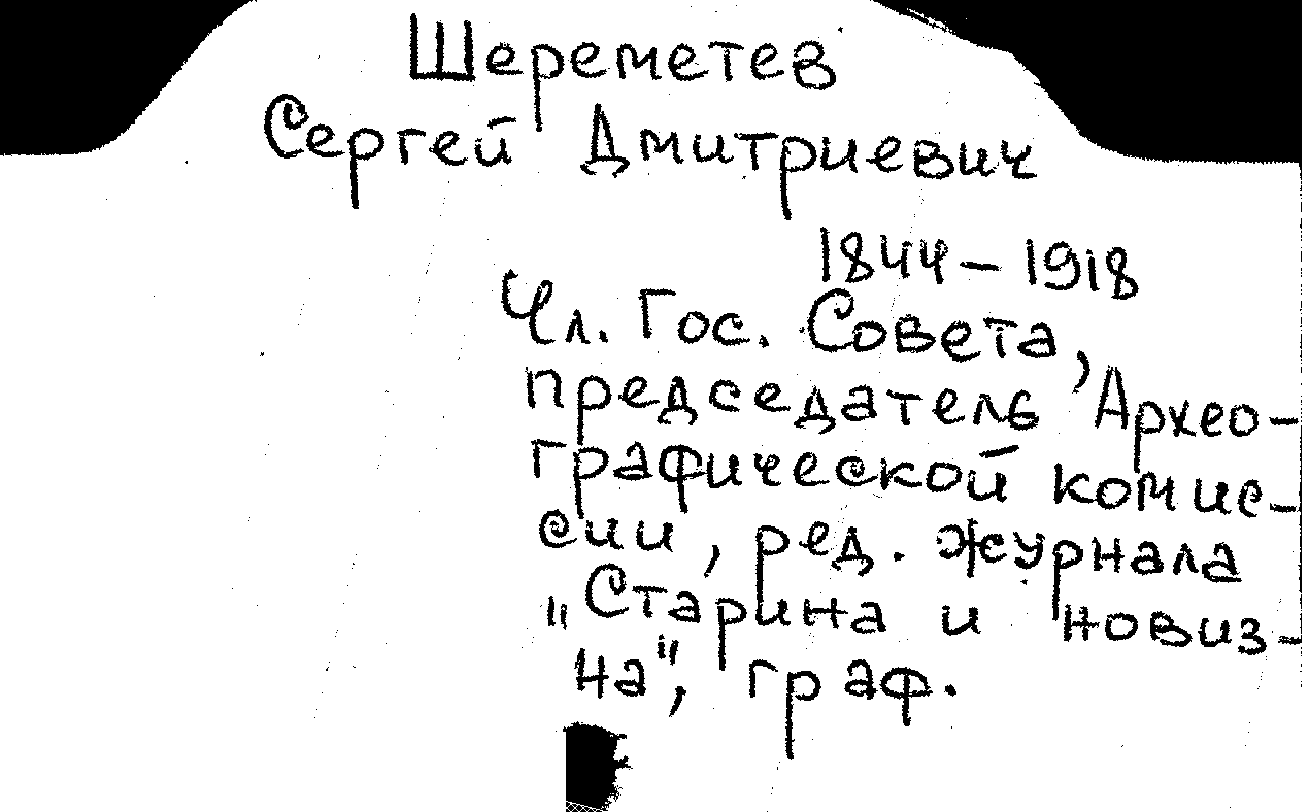 Шереметев
Сергей Дмитриевич
1844-1918
Чл. Гос. Совета,
председатель Архео-
графической комис-
сии, ред. журнала
"Старина и новиз-
на", граф.